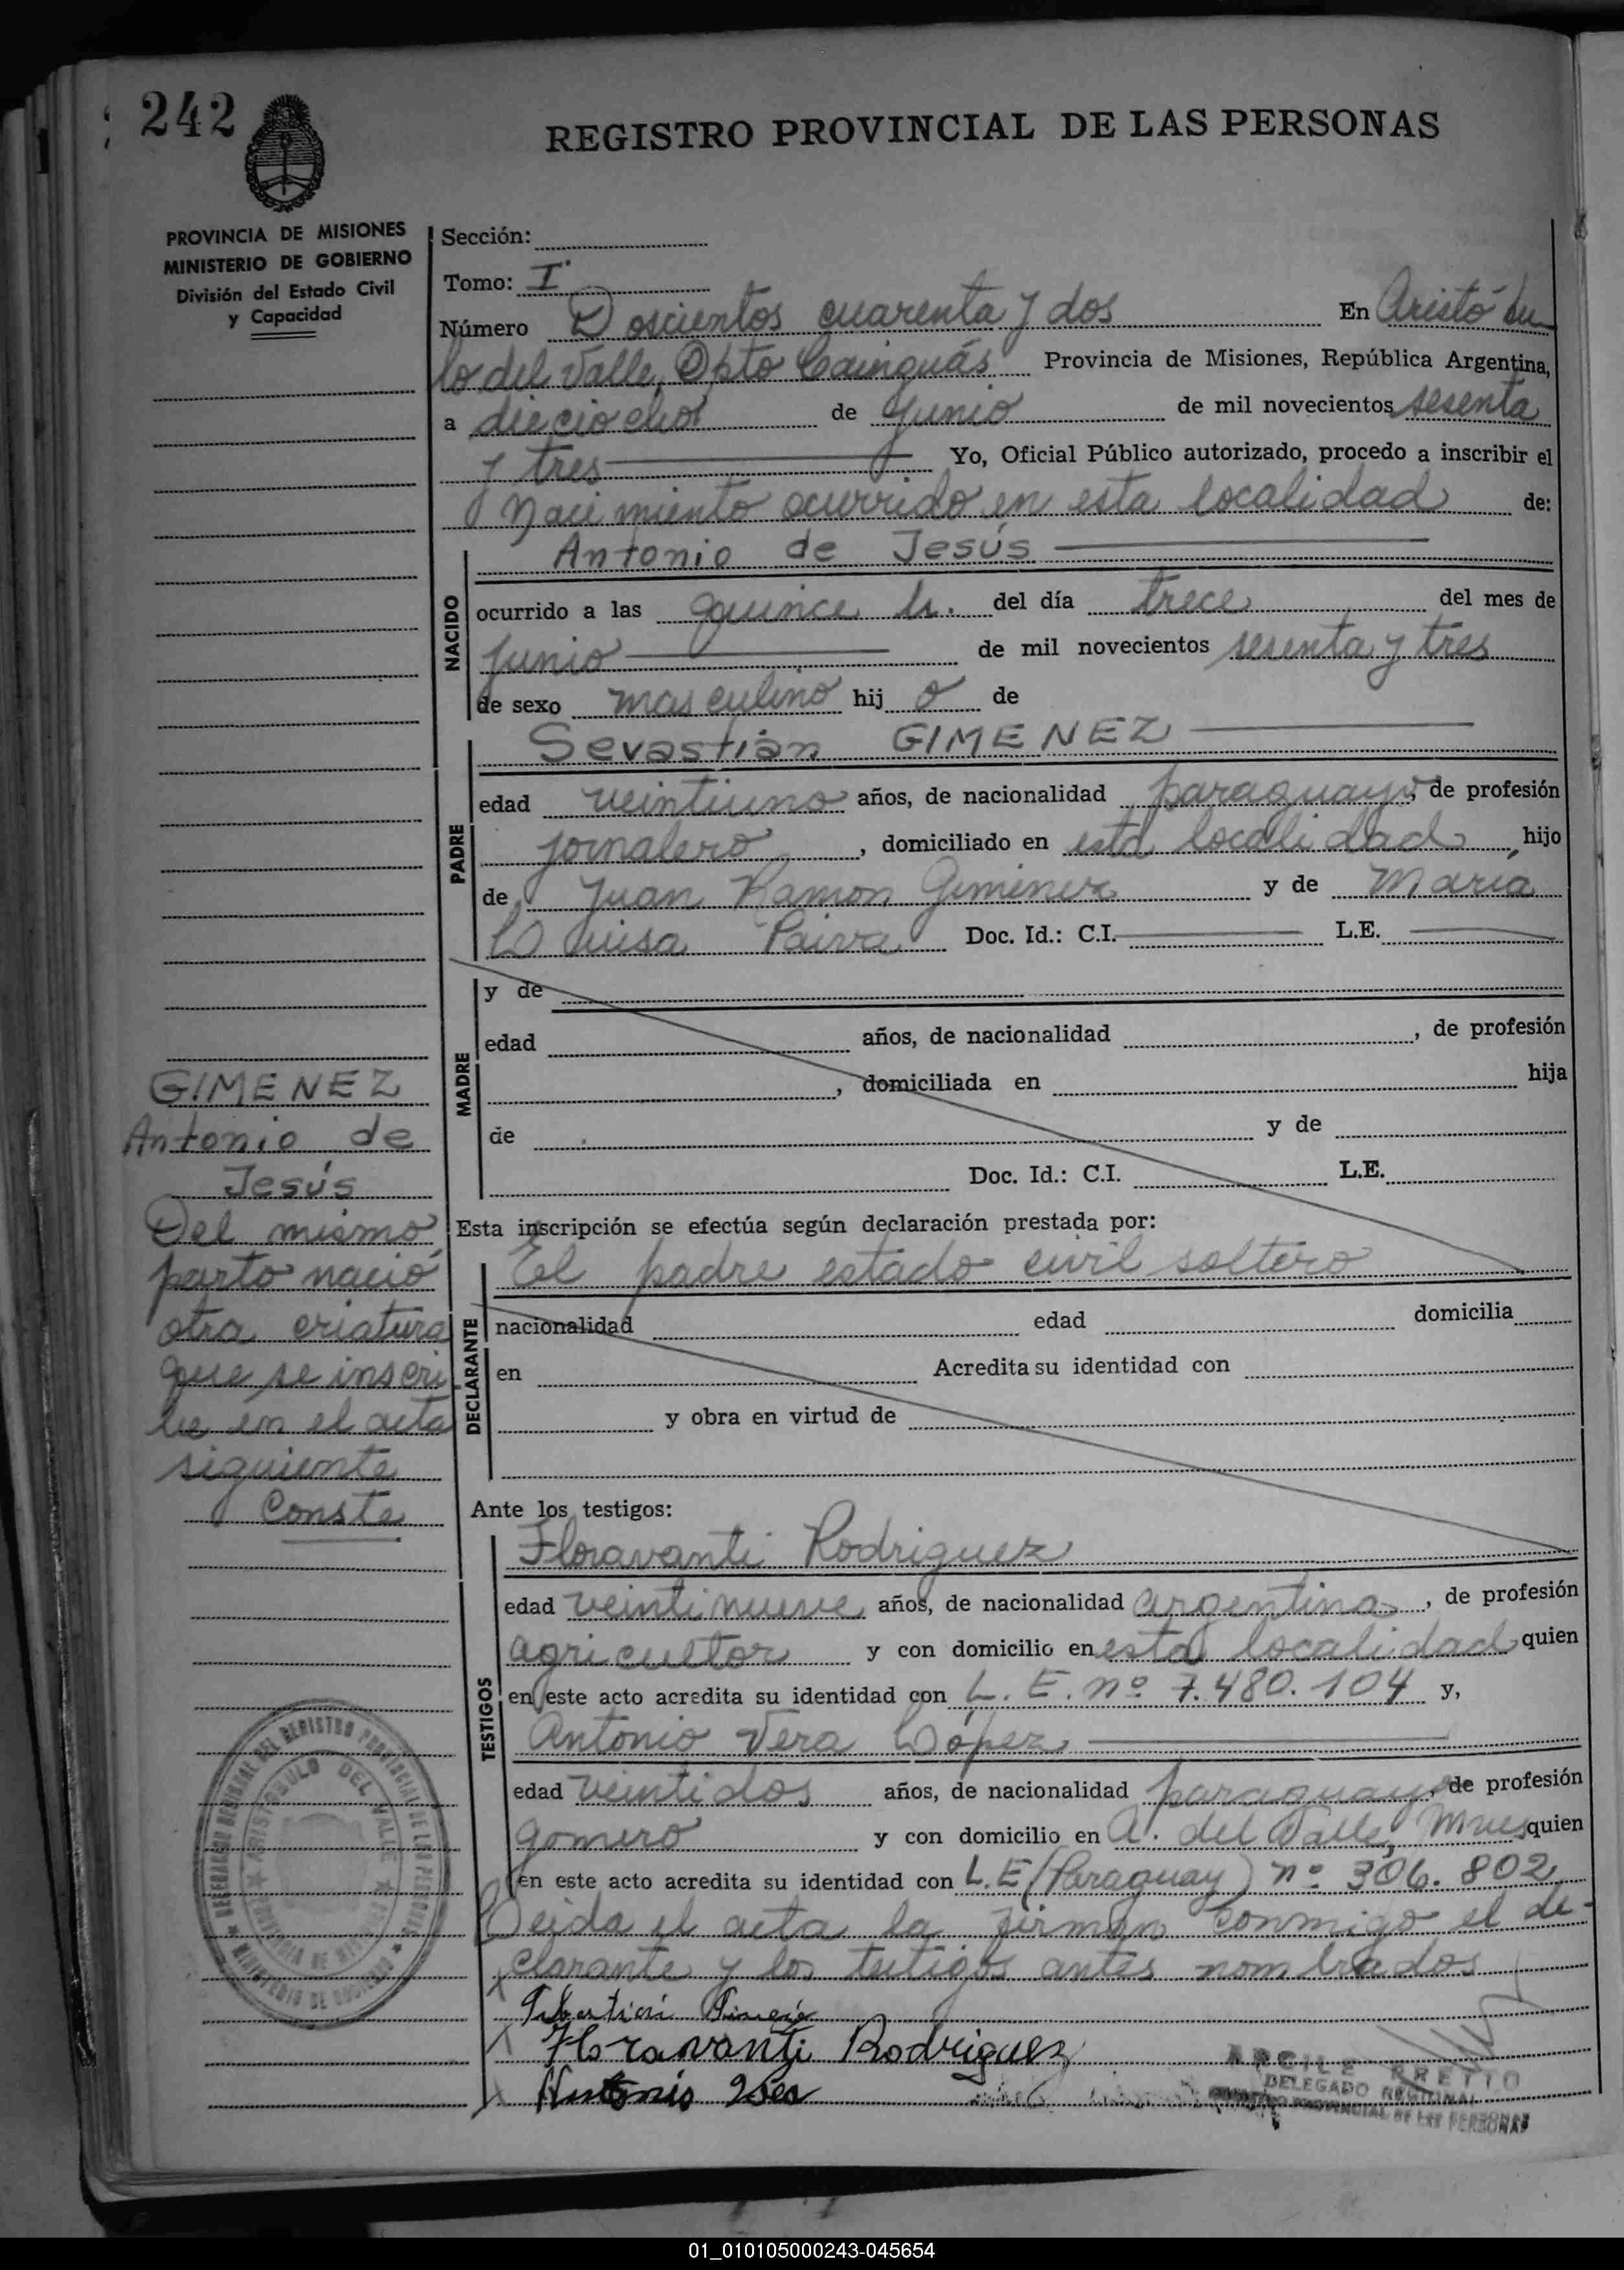 242
REGISTRO PROVINCIAL DE LAS PERSONAS
PROVINCIA DE MISIONES
MINISTERIO DE GOBIERNO
División del Estado Civil
y Capacidad
Sección:
Tomo: I
Número Doscientos cuarenta y dos En Aristóbu
lo del Valle, Dpto Cainguás Provincia de Misiones, República Argentina,
a dieciocho de junio de mil novecientos sesenta
y tres Yo, Oficial Público autorizado, procedo a inscribir el
Nacimiento ocurrido en esta localidad de:
NACIDO
Antonio de Jesús
ocurrido a las quince hs. del día trece del mes de
junio de mil novecientos sesenta y tres
de sexo masculino hij o de
PADRE
Sevastián GIMENEZ
edad veintiuno años, de nacionalidad paraguayo, de profesión
jornalero, domiciliado en esta localidad hijo
de Juan Ramon Gimenez y de María
Luisa Paiva Doc. Id.: C.I. L.E.
MADRE
y de
edad años, de nacionalidad , de profesión
, domiciliada en hija
de y de
Doc. Id.: C.I. L.E.
GIMENEZ
Antonio de
Jesús
Del mismo
parto nació
otra criatura
que se inscri
be en el acta
siguiente
Conste
Esta inscripción se efectúa según declaración prestada por:
DECLARANTE
El padre estado civil soltero
nacionalidad edad domicilia
en Acredita su identidad con
y obra en virtud de
Ante los testigos:
TESTIGOS
Floravanti Rodriguez
edad veintinueve años, de nacionalidad argentina, de profesión
agricultor y con domicilio en esta localidad quien
en este acto acredita su identidad con L. E. nº 7.480.104 y,
Antonio Vera López
edad veintidos años, de nacionalidad paraguayo, de profesión
gomero y con domicilio en A. del Valle, Mnes quien
en este acto acredita su identidad con L.E (Paraguay) nº 306.802
Leida el acta la firman conmigo el de-
clarante y los testigos antes nombrados
Floravanti Rodriguez
Antonio
DELEGADO REGIONAL
REGISTRO PROVINCIAL DE LAS PERSONAS
DELEGACION REGIONAL DEL REGISTRO PROVINCIAL DE LAS PERSONAS
ARISTOBULO DEL VALLE
PROVINCIA DE MISIONES
MINISTERIO DE GOBIERNO
01_010105000243-045654